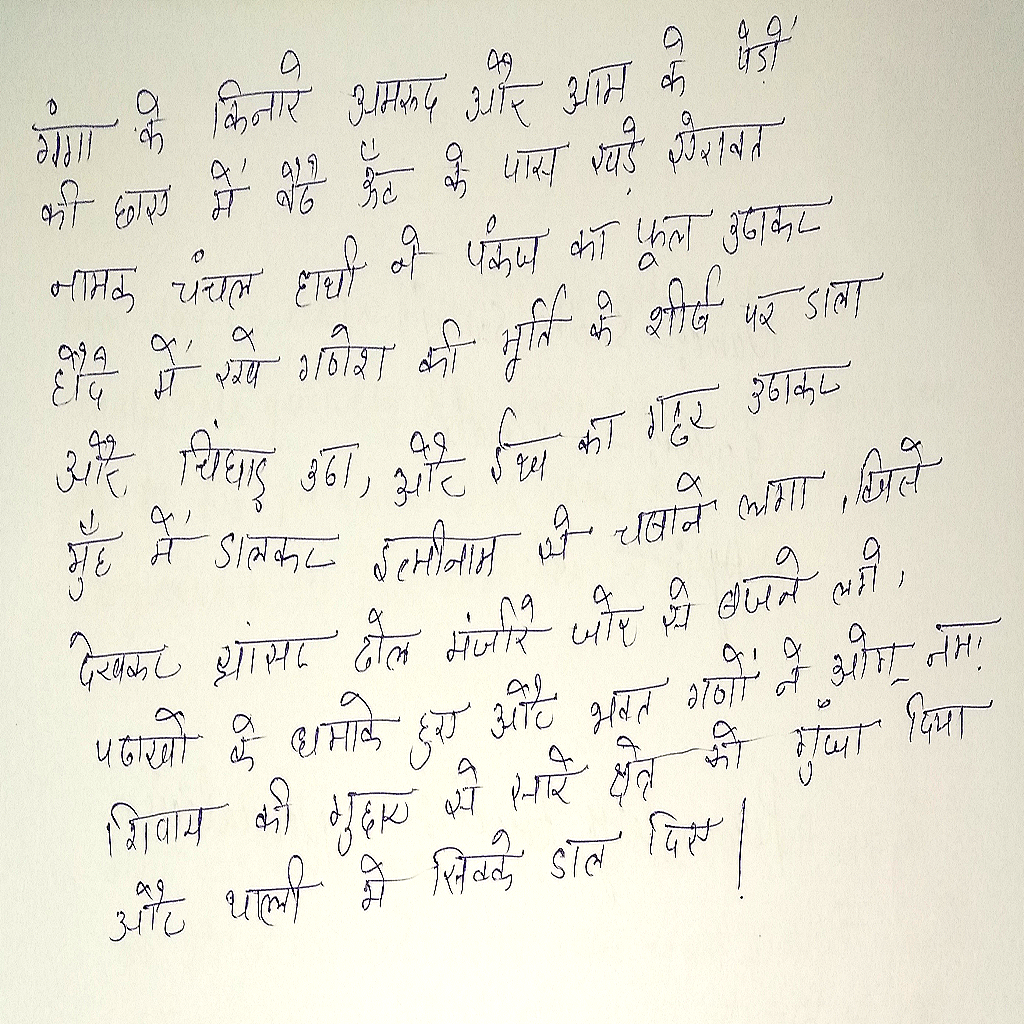 गंगा के किनारे अमरुद और आम के पेड़ों
की छाए में बैठे ऊँट के पास खड़े ऐरावत
नामक चंचल हाथी ने पंकज का फूल उठाकर
हौदे में रखे गणेश की मूर्ति के शीर्ष पर डाला
और चिंघाड़ उठा, और ईख का गट्ठर उठाकर
मुँह में डालकर इत्मीनाम से चबाने लगा, जिसे
देखकर झांझर ढोल मंजीरे जोर से बजने लगे,
पटाखों के धमाके हुए और भक्त गणों ने ओम् नमः
शिवाय की गुहार से सारे क्षेत्र को गुँजा दिया
और थाली में सिक्के डाल दिए।